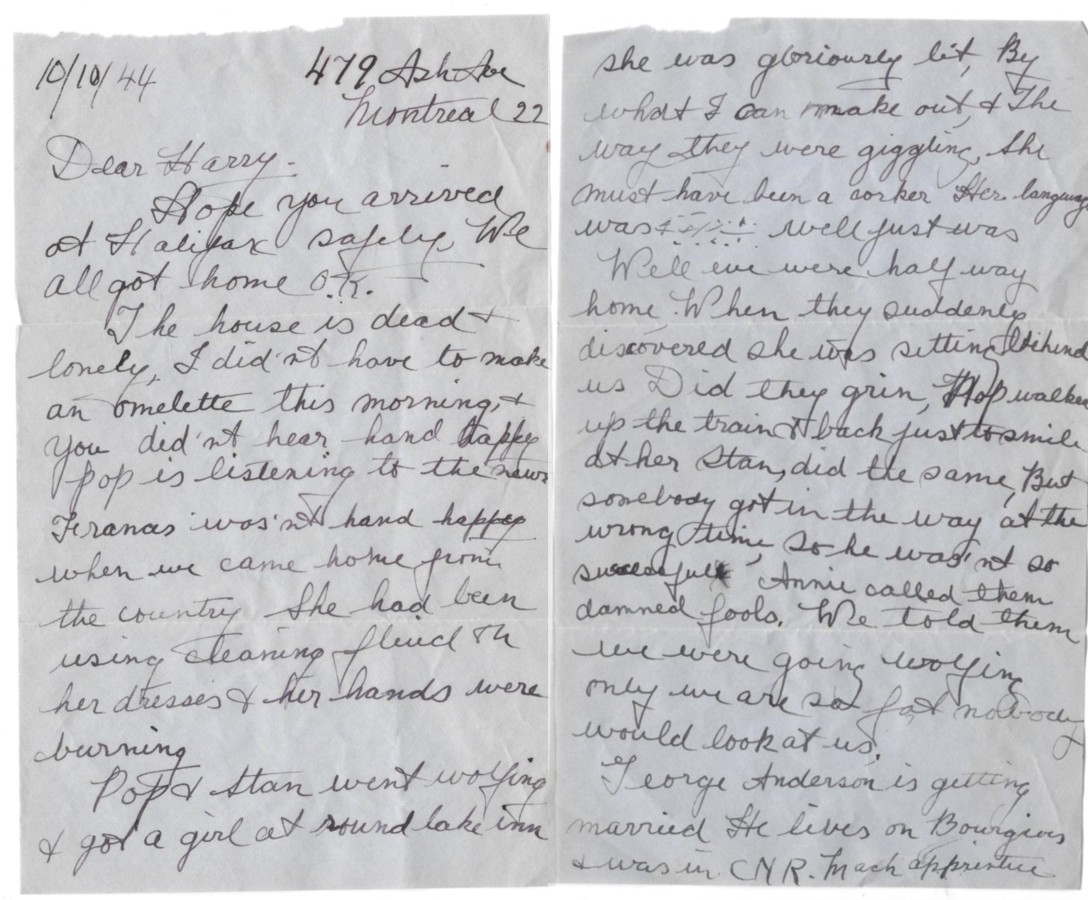 10/10/44 479 Ash Ave
Montreal 22
Dear Harry.
Hope you arrived
at Halifax safely. We
all got home O.K.
The house is dead &
lonely, I did'nt have to make
an omelette this morning, &
you did'nt hear hand happy
Pop is listening to the news
Frances was'nt hand happy
when we came home from
the country She had been
using cleaning fluid on
her dresses & her hands were
burning
Pop & Stan went wolfing
& got a girl at round lake inn
she was gloriously lit, By
what I can make out, & The
way they were giggling, She
must have been a corker Her language
was well just was
Well we were half way
home. When they suddenly
discovered she was setting behind
us Did they grin, Pop walked
up the train & back just to smile
at her Stan, did the same, But
somebody got in the way at the
wrong time, so he was'nt so
successful Annie called them
damned fools. We told them
we were going wolfing
only we are so fat nobody
would look at us.
George Anderson is getting
married He lives on Bourgeois
& was in CNR. Mach apprentice